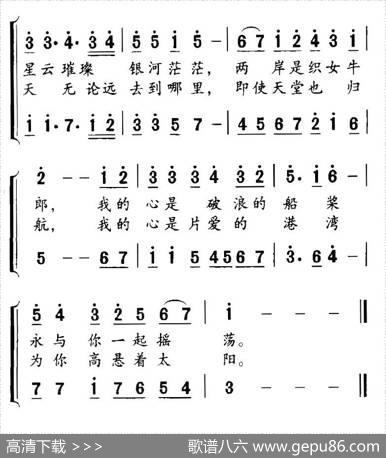 3 3·4·3 4 | 5 5 1 5 - | 6 7 1 2 4 3 1 |
星云璀璨 银河茫茫，两 岸是织女牛
天 无论远 去到哪里，即使天堂也 归
1 1·7·1 2 | 3 3 5 7 - | 4 5 6 7 2 1 6 |
2 - - 1 2 | 3 3 3 4 3 2 3 2 | 5· 1 6 - |
郎， 我的 心是 破浪的 船 桨
航， 我的 心是片爱的 港 湾
5 - - 6 7 | 1 1 5 4 5 6 7 | 3·6 4 - |
5 4 3 2 5 6 7 | 1 - - - ||
永与 你一起摇 荡。
为你 高悬着太 阳。
7 7 1 7 6 5 4 | 3 - - - ||
高清下载 >>> 歌谱八六 www.gepu86.com